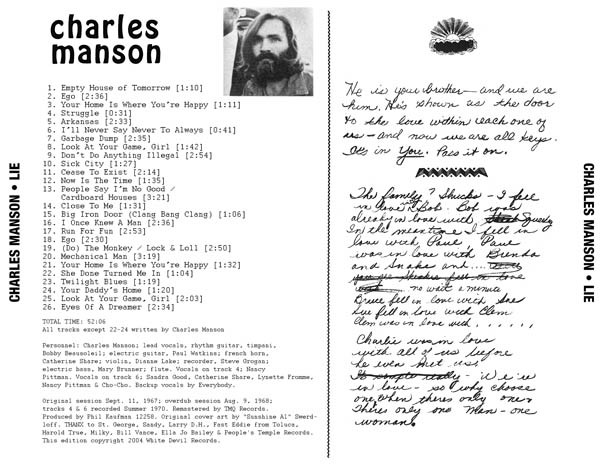 charles
manson
1. Empty House of Tomorrow [1:10]
2. Ego [2:36]
3. Your Home Is Where You're Happy [1:11]
4. Struggle [0:31]
5. Arkansas [2:33]
6. I'll Never Say Never To Always [0:41]
7. Garbage Dump [2:35]
8. Look At Your Game, Girl [1:42]
9. Don't Do Anything Illegal [2:54]
10. Sick City [1:27]
11. Cease To Exist [2:14]
12. Now Is The Time [1:35]
13. People Say I'm No Good /
Cardboard Houses [3:21]
14. Close To Me [1:31]
15. Big Iron Door (Clang Bang Clang) [1:06]
16. I Once Knew A Man [2:36]
17. Run For Fun [2:53]
18. Ego [2:30]
19. (Do) The Monkey / Lock & Loll [2:50]
20. Mechanical Man [3:19]
21. Your Home Is Where You're Happy [1:32]
22. She Done Turned Me In [1:04]
23. Twilight Blues [1:19]
24. Your Daddy's Home [1:20]
25. Look At Your Game, Girl [2:03]
26. Eyes Of A Dreamer [2:34]
TOTAL TIME: 52:06
All tracks except 22-24 written by Charles Manson
Personnel: Charles Manson; lead vocals, rhythm guitar, timpani,
Bobby Beausoleil; electric guitar, Paul Watkins; french horn,
Catherine Share; violin, Dianne Lake; recorder, Steve Grogan;
electric bass, Mary Brunner; flute. Vocals on track 4; Nancy
Pittman. Vocals on track 6; Sandra Good, Catherine Share, Lynette Fromme,
Nancy Pittman & Cho-Cho. Backup vocals by Everybody.
Original session Sept. 11, 1967; overdub session Aug. 9, 1968;
tracks 4 & 6 recorded Summer 1970. Remastered by TMQ Records.
Produced by Phil Kaufman 12258. Original cover art by "Sunshine Al" Swerd-
loff, THANX to St. George, Sasdy, Larry D.H., Fast Eddie from Toluca,
Harold True, Milky, Bill Vance, Ella Jo Bailey & People's Temple Records.
This edition copyright 2004 White Devil Records.
CHARLES MANSON • LIE
He is your brother - and we are
him. His shown us the door
to the love within each one of
us - and now we are all keys.
It's in You. Pass it on.
The family? Shucks - I fell
in love Bob. Bob was
already in love with Squeaky
In the meantime I fell in
love with Paul, Paul
was in love with Brenda
and Snake and....
no wait a minute
Bruce fell in love with Sue
Sue fell in love with Clem
Clem was in love with . . . . . .
Charlie was in love
with all of us before
he even met us!
We're
in love - so why choose
one when theres only one.
Theres only one Man - one
woman.
CHARLES MANSON • LIE